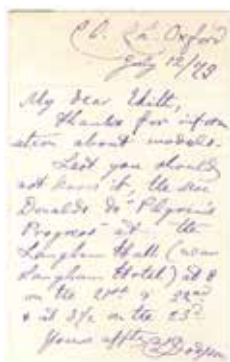 Ch. Ch. Oxford
July 12/79
My dear Edith,
Thanks for inform
ation about models.
Lest you should
not know it, the Mac
Donalds do "Pilgrim's
Progress" at the
Langham Hall (near
Langham Hotel) at 8
on the 21st & 22nd
& at 3½ on the 23rd
Yours affty
CLDodgson